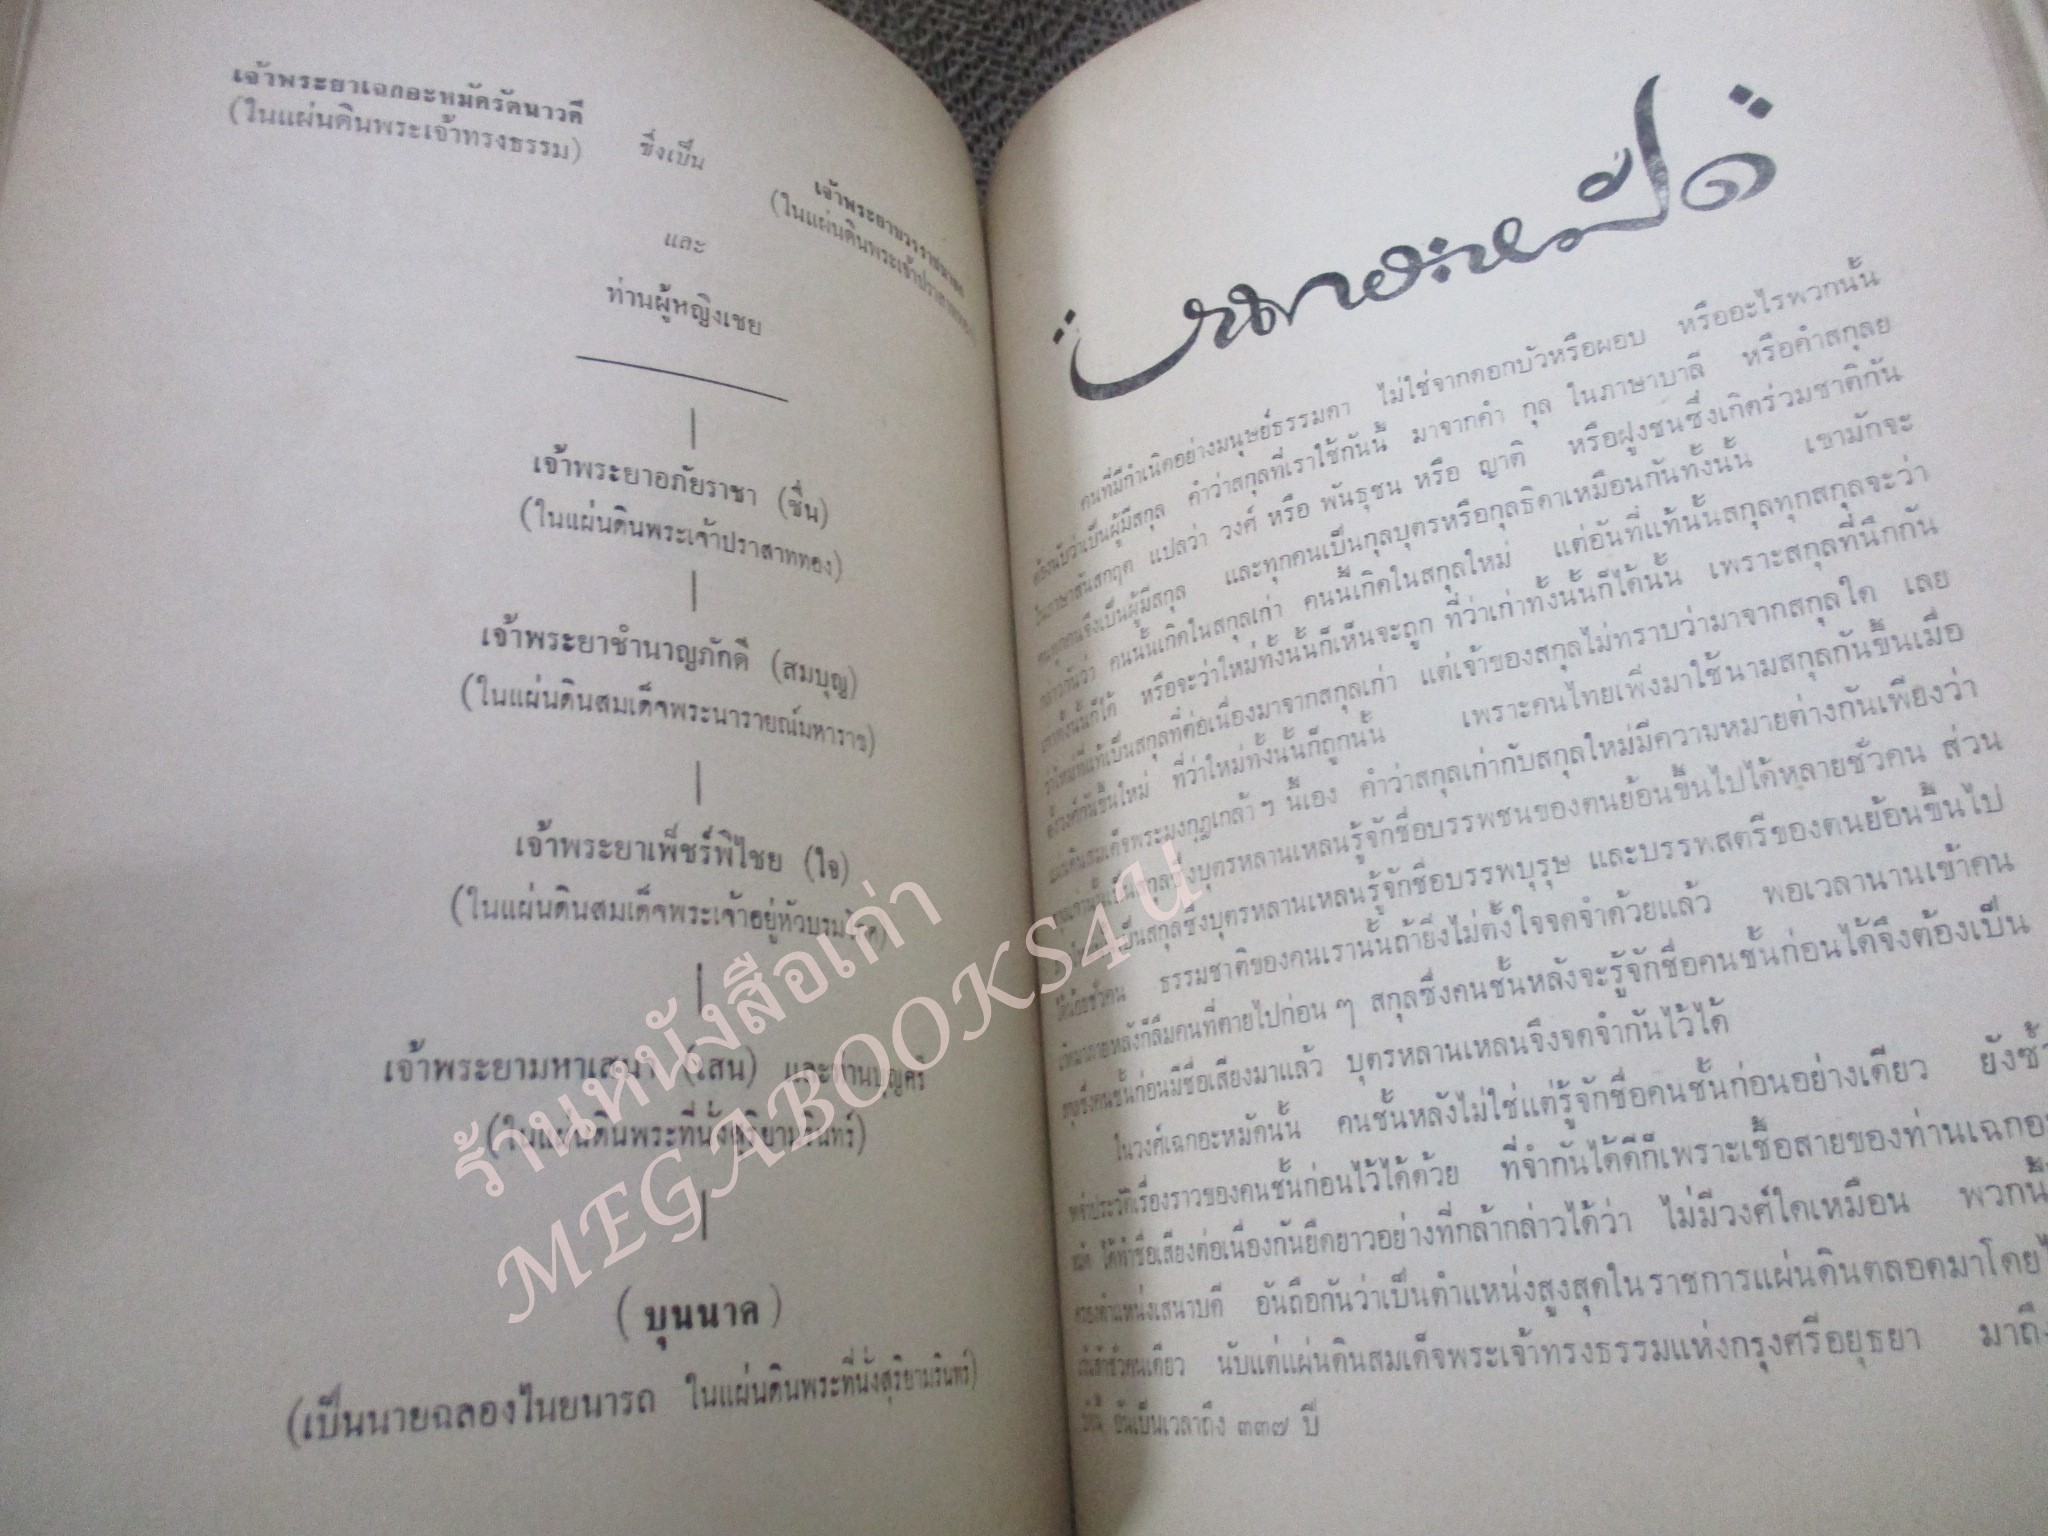 เจ้าพระยาเฉกอะหมัดรัตนาวดี
(ในแผ่นดินพระเจ้าทรงธรรม)
ซึ่งเป็น
เจ้าพระยาบวรราชนายก
(ในแผ่นดินพระเจ้าปราสาททอง)
และ
ท่านผู้หญิงเชย
เจ้าพระยาอภัยราชา (ชื่น)
(ในแผ่นดินพระเจ้าปราสาททอง)
เจ้าพระยาชำนาญภักดี (สมบุญ)
(ในแผ่นดินสมเด็จพระนารายณ์มหาราช)
เจ้าพระยาเพ็ชร์พิไชย (ใจ)
(ในแผ่นดินสมเด็จพระเจ้าอยู่หัวบรมโกศ)
เจ้าพระยามหาเสนา (เสน) และท่านบุญศรี
(ในแผ่นดินพระที่นั่งสุริยามรินทร์)
(บุนนาค)
(เป็นนายฉลองไนยนารถ ในแผ่นดินพระที่นั่งสุริยามรินทร์)
คนที่มีกำเนิดอย่างมนุษย์ธรรมดา ไม่ใช่จากดอกบัวหรือผอบ หรืออะไรพวกนั้น
ต้องนับว่าเป็นผู้มีสกุล คำว่าสกุลที่เราใช้กันนี้ มาจากคำ กุล ในภาษาบาลี หรือคำสกุลย
ในภาษาสันสกฤต แปลว่า วงศ์ หรือ พันธุชน หรือ ญาติ หรือฝูงชนซึ่งเกิดร่วมชาติกัน
คนทุกคนจึงเป็นผู้มีสกุล และทุกคนเป็นกุลบุตรหรือกุลธิดาเหมือนกันทั้งนั้น เขามักจะ
กล่าวกันว่า คนนั้นเกิดในสกุลเก่า คนนี้เกิดในสกุลใหม่ แต่อันที่แท้นั้นสกุลทุกสกุลจะว่า
เก่าทั้งนั้นก็ได้ หรือจะว่าใหม่ทั้งนั้นก็เห็นจะถูก ที่ว่าเก่าทั้งนั้นก็ได้นั้น เพราะสกุลที่นึกกัน
ว่าใหม่ที่แท้เป็นสกุลที่ต่อเนื่องมาจากสกุลเก่า แต่เจ้าของสกุลไม่ทราบว่ามาจากสกุลใด เลย
ตั้งวงศ์กันขึ้นใหม่ ที่ว่าใหม่ทั้งนั้นก็ถูกนั้น เพราะคนไทยเพิ่งมาใช้นามสกุลกันขึ้นเมื่อ
แผ่นดินสมเด็จพระมงกุฎเกล้า ฯ นี้เอง คำว่าสกุลเก่ากับสกุลใหม่มีความหมายต่างกันเพียงว่า
สกุลเก่านั้นเป็นสกุลซึ่งบุตรหลานเหลนรู้จักชื่อบรรพชนของตนย้อนขึ้นไปได้หลายชั่วคน ส่วน
เป็นสกุลซึ่งบุตรหลานเหลนรู้จักชื่อบรรพบุรุษ และบรรพสตรีของตนย้อนขึ้นไป
ได้น้อยชั่วคน ธรรมชาติของคนเรานั้นถ้ายิ่งไม่ตั้งใจจดจำด้วยแล้ว พอเวลานานเข้าคน
ก็ลืมคนที่ตายไปก่อน ๆ สกุลซึ่งคนชั้นหลังจะรู้จักชื่อคนชั้นก่อนได้จึงต้องเป็น
สกุลซึ่งคนชั้นก่อนมีชื่อเสียงมาแล้ว บุตรหลานเหลนจึงจดจำกันไว้ได้
ในวงศ์เฉกอะหมัดนั้น คนชั้นหลังไม่ใช่แต่รู้จักชื่อคนชั้นก่อนอย่างเดียว ยังซ้ำ
ประวัติเรื่องราวของคนชั้นก่อนไว้ได้ด้วย ที่จำกันได้ดีก็เพราะเชื้อสายของท่านเฉกอะ
หมัด ได้ทำชื่อเสียงต่อเนื่องกันยืดยาวอย่างที่กล้ากล่าวได้ว่า ไม่มีวงศ์ใดเหมือน พวกนี้
ตำแหน่งเสนาบดี อันถือกันว่าเป็นตำแหน่งสูงสุดในราชการแผ่นดินตลอดมาโดย
ชั่วคนเดียว นับแต่แผ่นดินสมเด็จพระเจ้าทรงธรรมแห่งกรุงศรีอยุธยา มาถึง
อันเป็นเวลาถึง ๓๓๗ ปี
ร้านหนังสือเก่า
MEGABOOKS4U